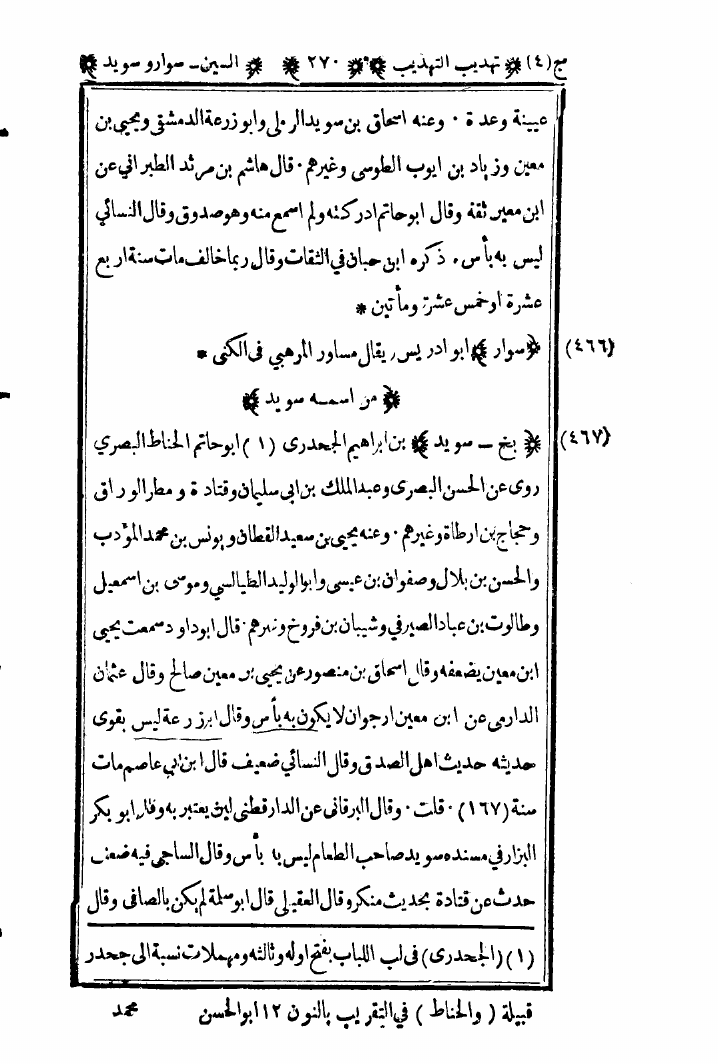 مج(٤) تهذيب التهذيب ٢٧٠ السين ـ سوار و سويد
عيينة وعدة ٠ وعنه اسحاق بن سويد الرملى وابو زرعة الدمشقى ويحيى بن
معين وزياد بن ايوب الطوسى وغيرهم ٠ قال هاشم بن مرثد الطبراني عن
ابن معين ثقة وقال ابو حاتم ادركته ولم اسمع منه وهو صدوق وقال النسائي
ليس به بأس ٠ ذكره ابن حبان في الثقات وقال ربما خالف مات سنة اربع
عشرة او خمس عشرة ومأتين *
(٤٦٦) ﴿سوار﴾ ابو ادريس ٫ يقال مساور المرهبي فى الكنى *
﴿من اسمه سويد﴾
(٤٦٧) ﴿بخ ـ سويد﴾ بن ابراهيم الجحدرى (١) ابو حاتم الحناط البصري
روى عن الحسن البصرى وعبد الملك بن ابى سليمان وقتادة و مطر الوراق
وحجاج بن ارطاة وغيرهم ٠ وعنه يحيى بن سعيد القطان و يونس بن محمد المؤدب
والحسن بن بلال وصفوان بن عيسى وابو الوليد الطيالسي وموسى بن اسمعيل
وطالوت بن عباد الصيرفي وشيبان بن فروخ وغيرهم ٠ قال ابو داود سمعت يحيى
ابن معين يضعفه وقال اسحاق بن منصور عن يحيى بن معين صالح وقال عثمان
الدارمى عن ابن معين ارجوان لا يكون به بأس وقال ابو زرعة ليس بقوى
حديثه حديث اهل الصدق وقال النسائي ضعيف قال ابن ابي عاصم مات
سنة (١٦٧) ٠ قلت ٠ وقال البرقانى عن الدارقطنى لين يعتبر به وقال ابو بكر
البزار في مسنده سويد صاحب الطعام ليس به بأس وقال الساجى فيه ضعف
حدث عن قتادة بحديث منكر وقال العقيلى قال ابو سلمة لم يكن بالصافى وقال
(١) (الجحدرى) فى لب اللباب بفتح اوله وثالثه ومهملات نسبة الى جحدر
قبيلة (والحناط) في التقريب بالنون ١٢ ابو الحسن محمد